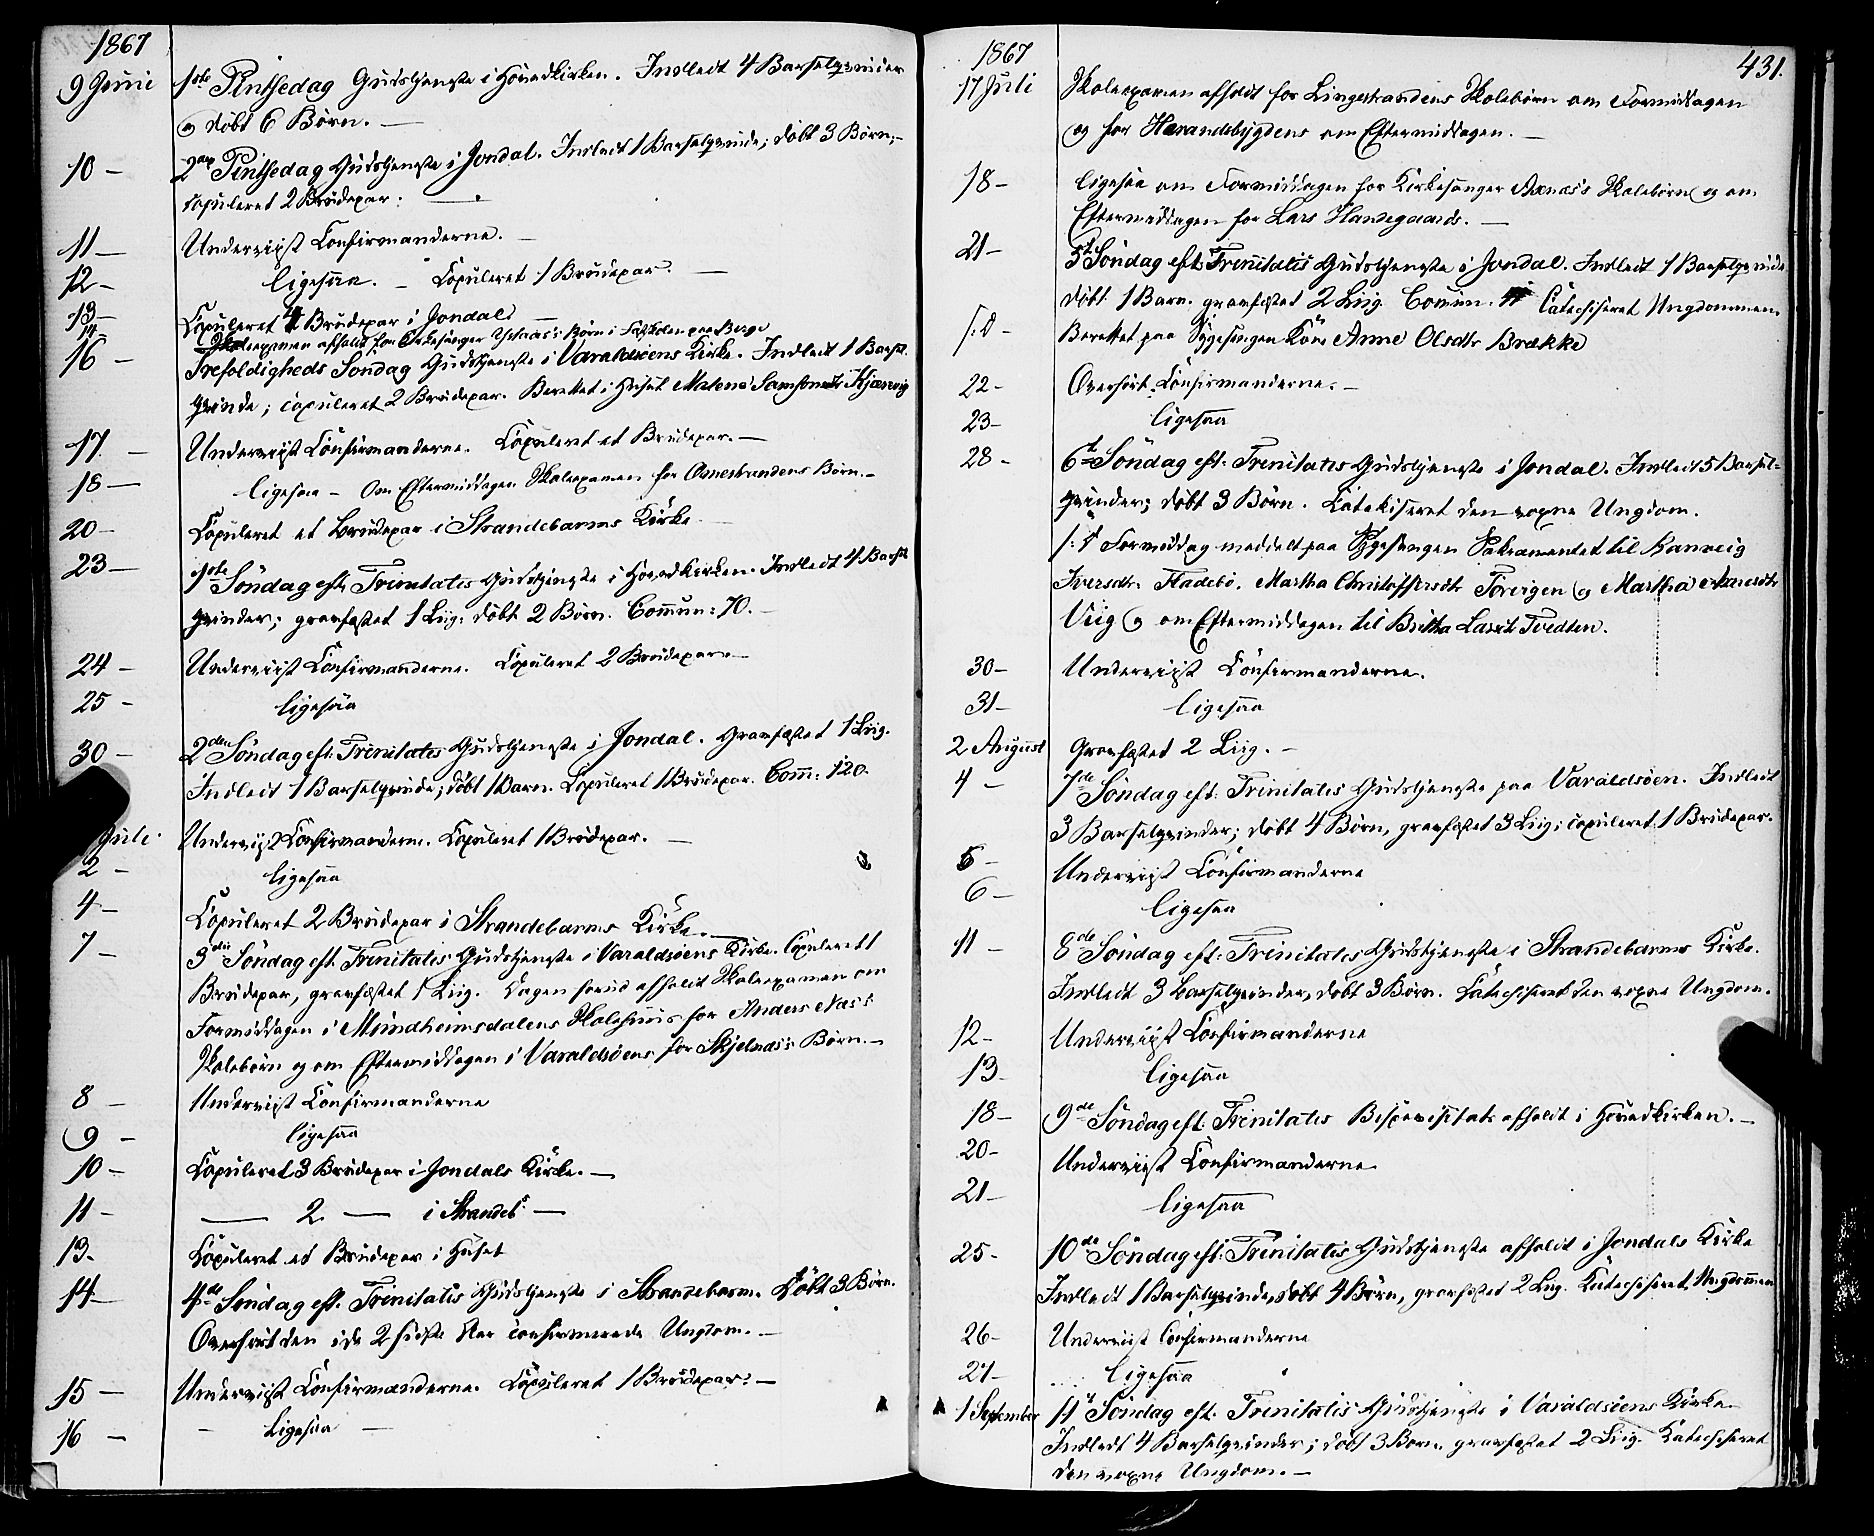 1867
9 Juni 1ste Pintsedag Gudstjeneste i Hovedkirken. Indledt 4 Barselqvinder
og døbt 6 Børn. —
10 — 2den Pintsedag Gudstjeneste i Jondal. Indledt 1 Barselqvinde; døbt 3 Børn;
copuleret 2 Brudepar. —
11 — Underviist Confirmanderne. —
12 — ligesaa. — Copuleret 1 Brudepar. —
13 — Copuleret 4 Brudepar i Jondal. —
14 Skoleexamen afholdt for Kirkesanger Børn i paa Berge
16 — Trefoldigheds Søndag Gudstjeneste i Varaldsøens Kirke. Indledt 1 Barsel-
qvinde; copuleret 2 Brudepar. Berettet i Huset Malene Samsonsdtr
17. — Underviist Confirmanderne. Copuleret et Brudepar. —
18 — ligesaa — Om Eftermiddagen Skoleexamen for Omestrandens Børn. —
20 — Copuleret et Brudepar i Strandebarms Kirke
23 — 1ste Søndag eft. Trinitatis Gudstjeneste i Hovedkirken. Indledt 4 Barsel
qvinder; gravfæstet 1 Liig; døbt 2 Børn. Commun: 70. —
24 — Underviist Confirmanderne. Copuleret 2 Brudepar —
25 — ligesaa
30 — 2den Søndag eft. Trinitatis Gudstjeneste i Jondal. Gravfæstet 1 Liig.
Indledt 1 Barselqvinde; døbt 1 Barn. Copuleret 1 Brudepar. Comm: 120.
Juli Underviist Confirmanderne. Copuleret 1 Brudepar. —
2 — ligesaa
4 — Copuleret 2 Brudepar i Strandebarms Kirke. —
7 — 3die Søndag eft. Trinitatis Gudstjeneste i Varaldsøens Kirke. Copuleret 1
Brudepar, gravfæstet 1 Liig. Dagen forud afholdt Skoleexamen om
Formiddagen i Mundheimsdalens Skolehuus for Anders Næs's
Skolebørn og om Eftermiddagen i Varaldsøens for Skjelnæs's Børn. —
8 — Underviist Confirmanderne
9 — ligesaa
10 — Copuleret 3 Brudepar i Jondals Kirke. —
11 — — 2 — i Strandeb. —
13. Copuleret et Brudepar i Huset
14 — 4de Søndag eft. Trinitatis Gudstjeneste i Strandebarm. Døbt 3 Børn.
Overhørt den i de 2 sidste Aar confirmerede Ungdom. —
15 — Underviist Confirmanderne. Copuleret 1 Brudepar. —
16 — — ligesaa —
1867 431.
17 Juli Skoleexamen afholdt for Lingestrandens Skolebørn om Formiddagen
og for Herandsbygdens om Eftermiddagen. —
18 — ligesaa om Formiddagen for Kirkesanger Axnæs's Skolebørn og om
Eftermiddagen for Lars Handegaards. —
21 — 5te Søndag eft. Trinitatis Gudstjeneste i Jondal. Indledt 1 Barselqvinde
døbt 1 Barn. gravfæstet 2 Liig. Comun. Catechiseret Ungdommen
s. d — Berettet paa Sygesengen Kone Anne Olsdtr Brække
22 — Overhørt Confirmanderne. —
23 — ligesaa
28 — 6te Søndag eft. Trinitatis Gudstjeneste i Jondal. Indledt 5 Barsel-
qvinder; døbt 3 Børn. Catekiseret den voxne Ungdom.
s. d Formiddag meddelt paa Sygesengen Sakramentet til Ranveig
Iversdtr Fladebø, Martha Christoffersdtr Torvigen og Martha
Viig og om Eftermiddagen til Britha Larsdtr Tvedten.
30 — Underviist Confirmanderne.
31 — ligesaa
2 August Gravfæstet 2 Liig. —
4 — 7de Søndag eft. Trinitatis Gudstjeneste paa Varaldsøen. Indledt
3 Barselqvinder; døbt 4 Børn, gravfæstet 3 Liig; copuleret 1 Brudepar.
5 — Underviist Confirmanderne
6 — ligesaa
11 — 8de Søndag eft. Trinitatis Gudstjeneste i Strandebarms Kirke.
Indledt 3 Barselqvinder, døbt 3 Børn. Catechiseret den voxne Ungdom.
12 — Underviist Confirmanderne
13 — ligesaa
18 — 9de Søndag eft. Trinitatis Bispevisitats afholdt i Hovedkirken. —
20 — Underviist Confirmanderne
21 — ligesaa
25 — 10de Søndag eft. Trinitatis Gudstjeneste afholdt i Jondals Kirke
Indledt 1 Barselqvinde, døbt 4 Børn, gravfæstet 2 Liig. Katechiseret Ungdommen
26 — Underviist Confirmanderne
27 — ligesaa
1 September 11te Søndag eft. Trinitatis Gudstjeneste i Varaldsøens Kirke.
Indledt 4 Barselqvinder; døbt 3 Børn gravfæstet 2 Liig. Katechiseret
den voxne Ungdom. —